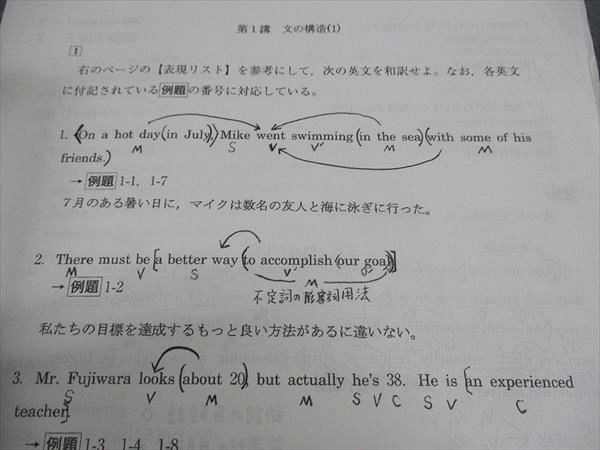 第1講 文の構造(1)
1
右のページの【表現リスト】を参考にして，次の英文を和訳せよ。なお，各英文
に付記されている例題の番号に対応している。
1. 《On a hot day (in July),》 Mike went swimming (in the sea) (with some of his
M S V V' M M
friends.)
→ 例題 1-1, 1-7
7月のある暑い日に，マイクは数名の友人と海に泳ぎに行った。
2. There must be [a better way (to accomplish (our goal)]
M V S V' O'
M
→ 例題 1-2
不定詞の形容詞用法
私たちの目標を達成するもっと良い方法があるに違いない。
3. Mr. Fujiwara looks (about 20), but actually he's 38. He is [an experienced
S V M M S V C S V C
teacher].
→ 例題 1-3, 1-4, 1-8